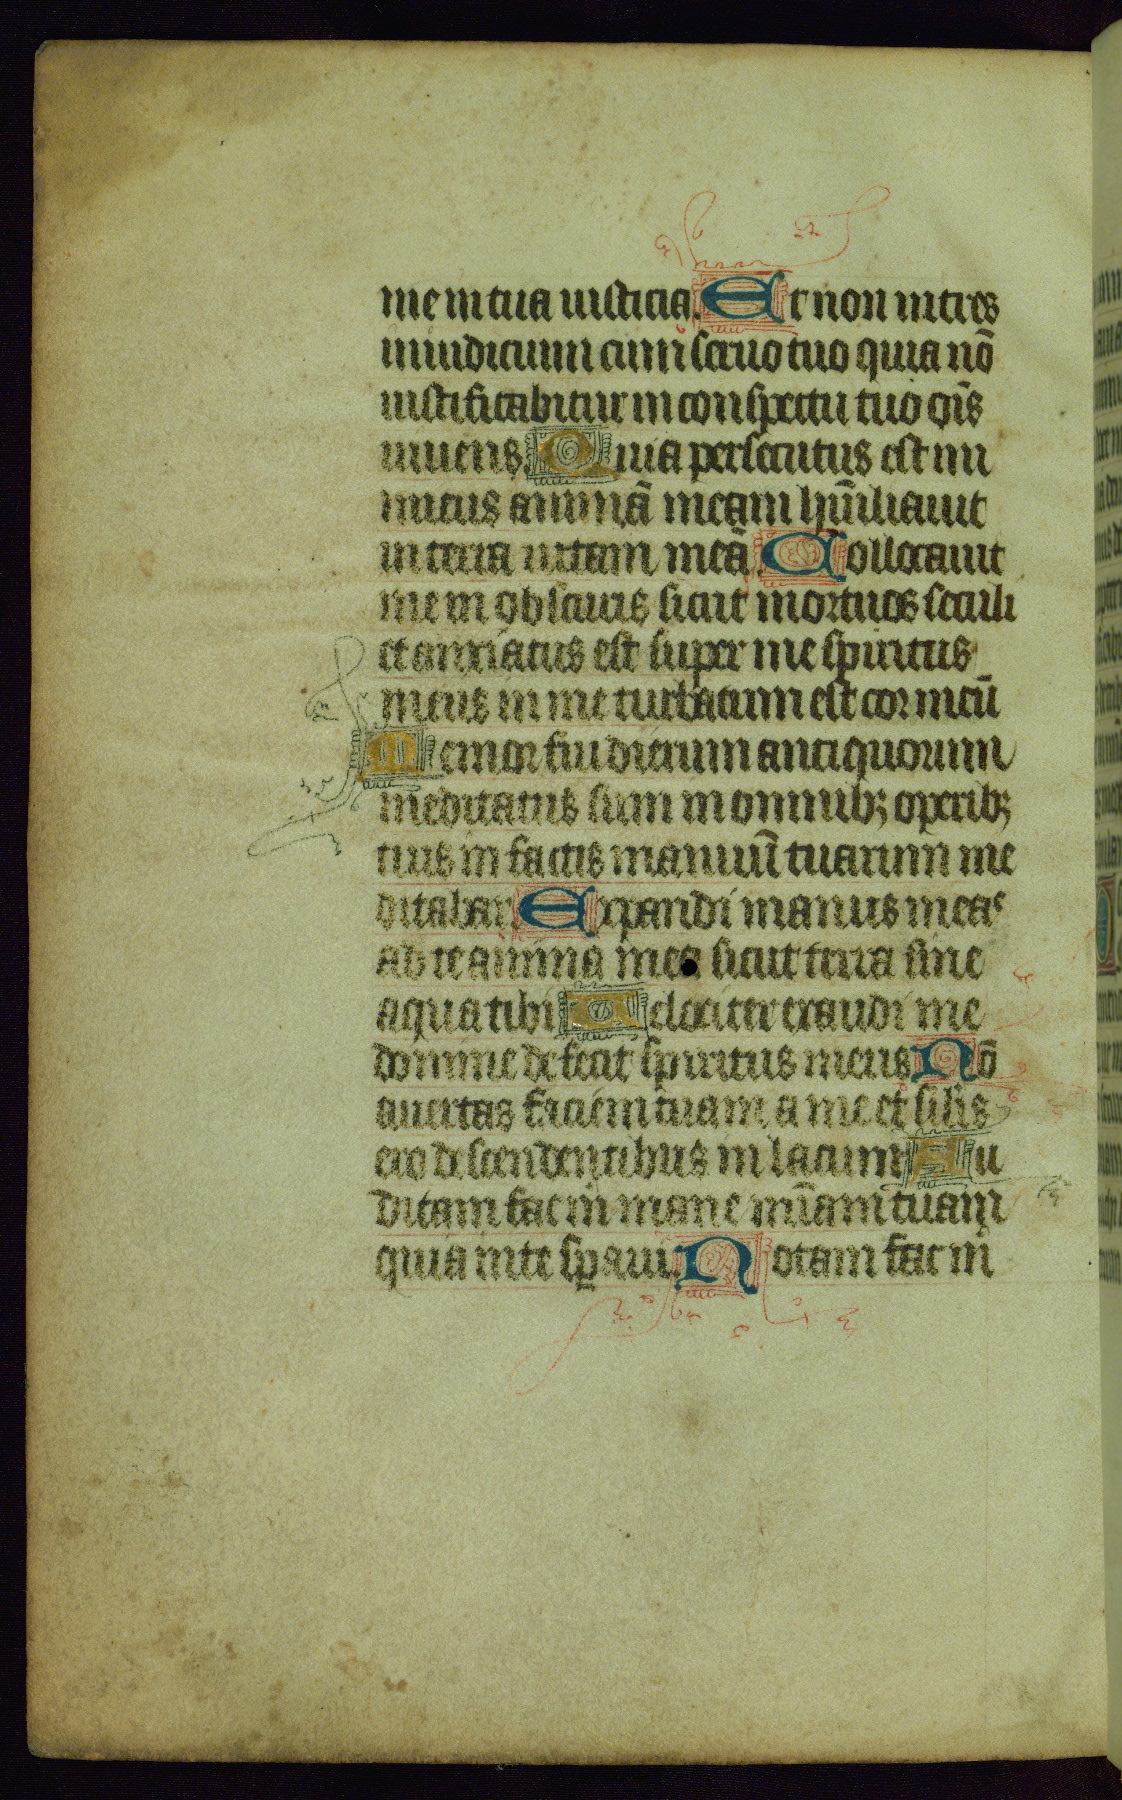 me in tua iusticia. Et non intres
in iudicium cum seruo tuo quia nō
iustificabitur in conspectu tuo oīs
uiuens. Quia persecutus est ini
micus animā meam hūiliauit
in terra uitam meā. Collocauit
me in obscuris sicut mortuos seculi
et anxiatus est super me spiritus
meus in me turbatum est cor meū
Memor fui dierum antiquorum
meditatus sum in omnibꝫ operibꝫ
tuis in factis manuū tuarum me
ditabar. Expandi manus meas
ad te anima mea sicut terra sine
aqua tibi Uelociter exaudi me
domine defecit spiritus meus Nō
auertas faciem tuam a me et silis
ero descendentibus in lacum Au
ditam fac m̄ mane mīam tuam
quia inte sꝑaui. Notam fac m̄